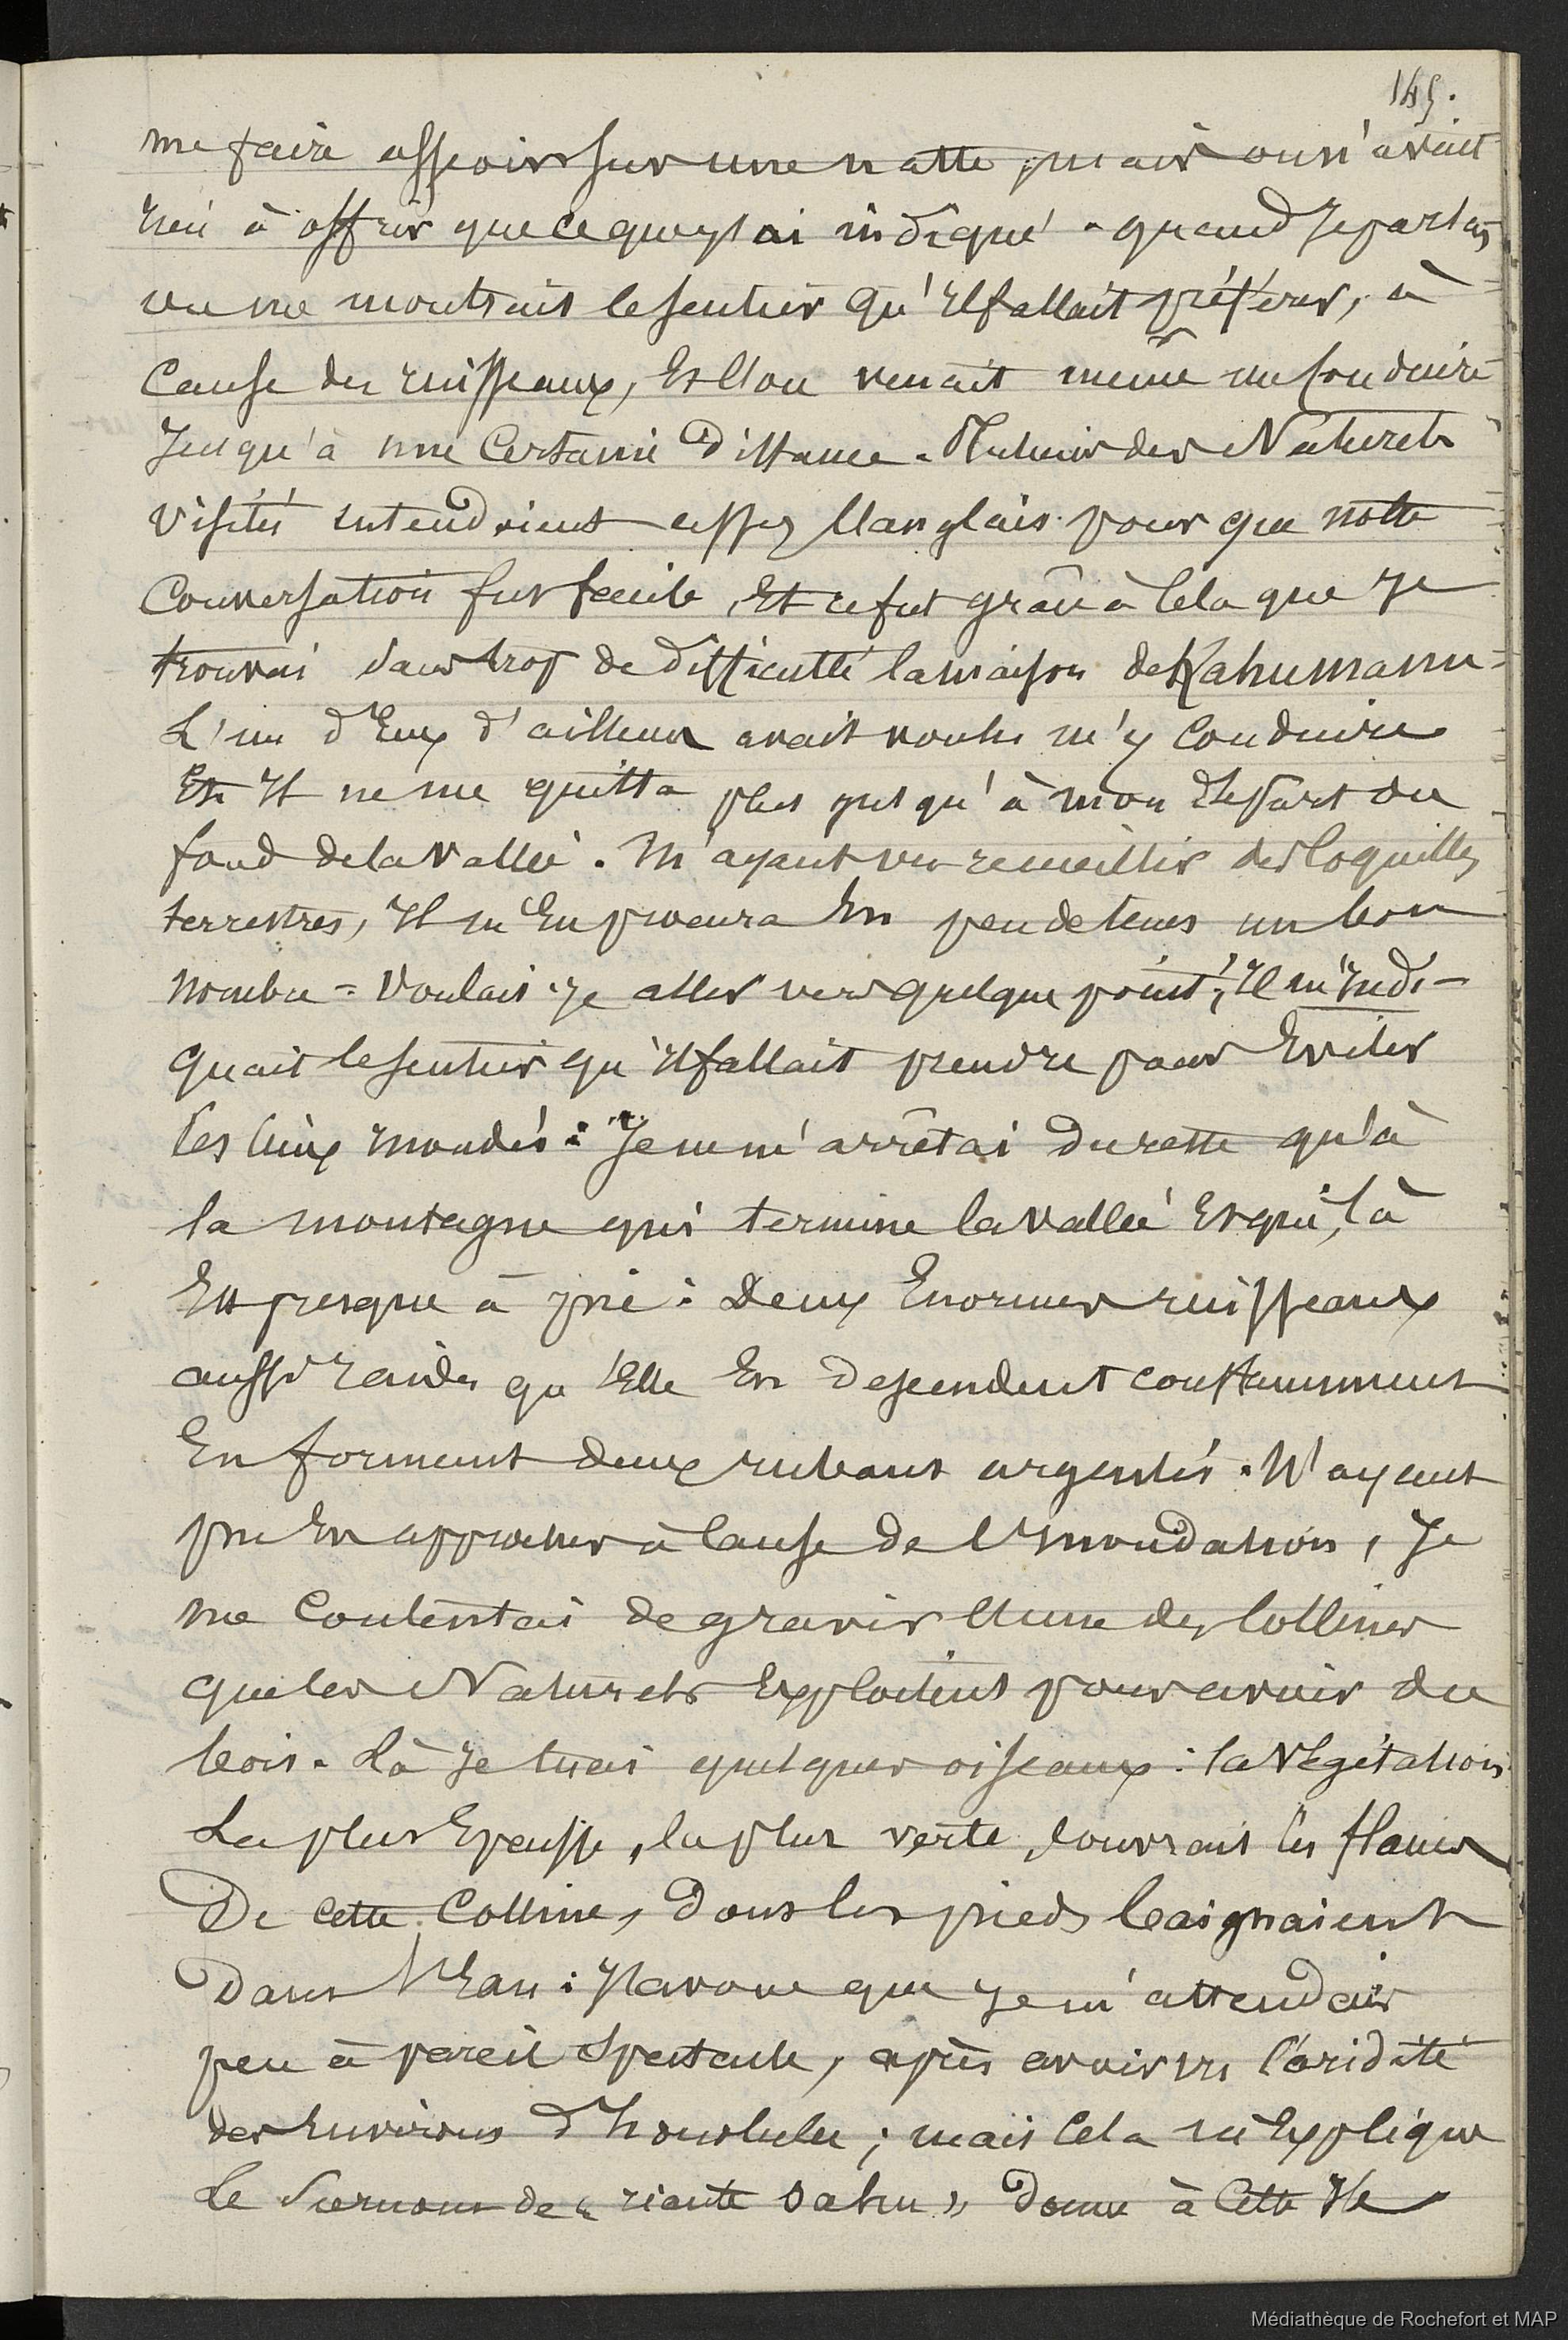 145.
me faire asseoir sur une natte, mais on n'avait
rien à offrir que ce que j'ai indiqué. quand je partais
on me montrait le sentier qu'il fallait préférer, à
cause des ruisseaux, et l'on venait même me conduire
jusqu'à une certaine distance. Plusieurs des Naturels
visités entendaient assez l'anglais pour que notre
conversation fut facile, et ce fut grâce à cela que je
trouvai sans trop de difficulté la maison de Kahumanu-
L'un d'eux d'ailleurs avait voulu m'y conduire
Et il ne me quitta plus jusqu'à mon départ du
fond de la vallée. M'ayant vu recueillir des coquilles
terrestres, il m'en procura en peu de tems un bon
nombre = voulais-je aller vers quelque point, il m'indi-
quait le sentier qu'il fallait prendre pour éviter
les lieux inondés : Je ne m'arrêtai du reste qu'à
la montagne qui termine la vallée et qui, là
est presque à pic : Deux énormes ruisseaux
aussi raides qu'elle en descendent constamment
en formant deux rubans argentés. N'ayant
pu en approcher à cause de l'inondation, je
me contentai de gravir l'une des collines
que les Naturels exploitent pour avoir du
bois. Là je tuai quelques oiseaux : la végétation
La plus épaisse, la plus verte, couvrait les flancs
De cette colline, dont les pieds baignaient
Dans l'eau : J'avoue que je m'attendais
peu à pareil spectacle, après avoir vu l'aridité
des environs d'honolulu ; mais cela m'explique
Le surnom de « riante oahu » donné à cette île
Médiathèque de Rochefort et MAP